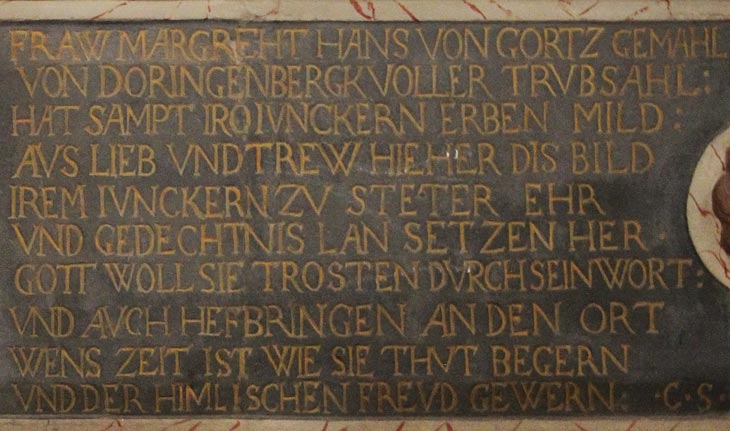 FRAW MARGREHT HANS VON GORTZ GEMAHL
VON DORINGENBERGK VOLLER TRVBSAHL:
HAT SAMPT IRO IVNCKERN ERBEN MILD:
AVS LIEB VND TREW HIEHER DIS BILD
IREM IVNCKERN ZV STETER EHR
VND GEDECHTNIS LAN SETZEN HER.
GOTT WOLL SIE TROSTEN DVRCH SEIN WORT:
VND AVCH HEFBRINGEN AN DEN ORT
WENS ZEIT IST WIE SIE THVT BEGERN
VND DER HIMLISCHEN FREVD GEWERN: ·C·S·